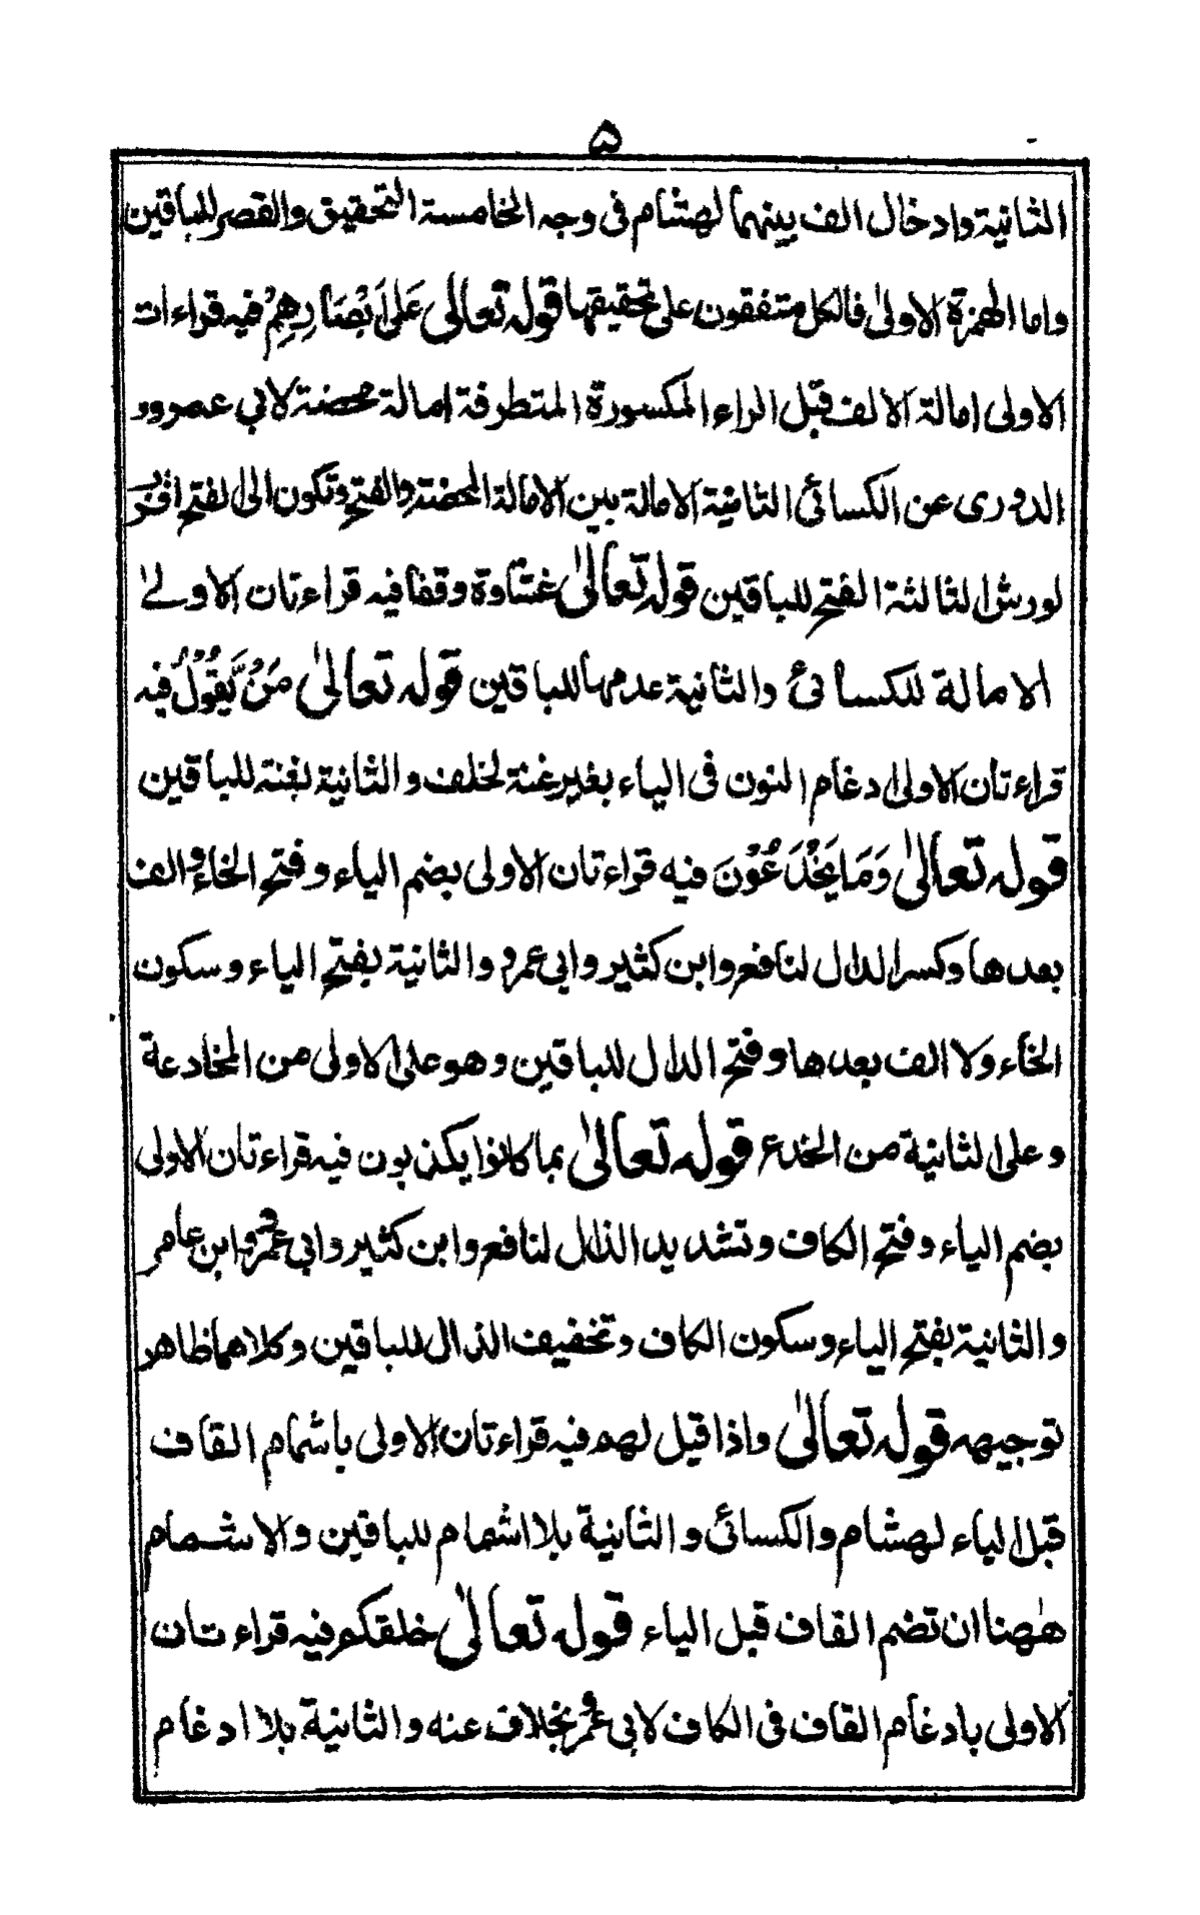 ۵
الثانية وادخال الف بينهما لهشام فى وجه الخامسة التحقيق والقصر للباقين
واما الهمزة الاولىٰ فالكل متفقون على تحقيقها قوله تعالى عَلىٰ اَبْصَارِهِمْ فيه قراءات
الاولى امالة الالف قبل الراء المكسورة المتطرفة امالة محضة لابي عمرو و
الدورى عن الكسائى الثانية الامالة بين الامالة المحضة والفتح وتكون الى الفتح اقرب
لورش الثالثة الفتح للباقين قوله تعالىٰ غشاوة وقفا فيه قراءتان الاولےٰ
الامالة للكسائى والثانية عدمها للباقين قوله تعالىٰ مَنْ يَّقُوْلُ فيه
قراءتان الاولىٰ ادغام النون فى الياء بغير غنة لخلف والثانية بغنة للباقين
قوله تعالىٰ وَمَا يَخْدَعُوْنَ فيه قراءتان الاولى بضم الياء وفتح الخاء والف
بعدها وكسر الدال لنافع وابن كثير وابى عمرو والثانية بفتح الياء وسكون
الخاء ولا الف بعدها وفتح الدال للباقين وهو على الاولى من المخادعة
وعلى الثانية من الخدع قوله تعالىٰ بما كانوا يكذبون فيه قراءتان الاولى
بضم الياء وفتح الكاف وتشديد الذال لنافع وابن كثير وابي عمرو وابن عامر
والثانية بفتح الياء وسكون الكاف وتخفيف الذال للباقين وكلاهما ظاهر
توجيهه قوله تعالىٰ واذا قيل لهم فيه قراءتان الاولى باشمام القاف
قبل الياء لهشام والكسائى والثانية بلا اشمام للباقين والاشمام
هٰهنا ان تضم القاف قبل الياء قوله تعالىٰ خلقكم فيه قراءتان
الاولى بادغام القاف فى الكاف لابي عمرو بخلاف عنه والثانية بلا ادغام